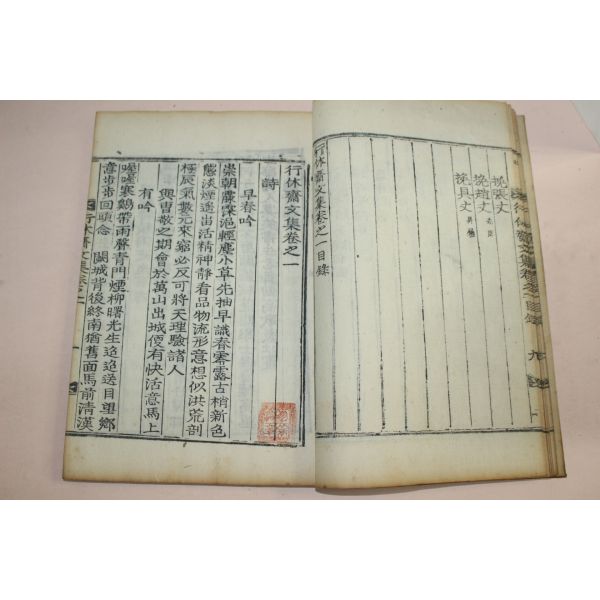 挽張丈
挽趙丈
挽具丈
行休齋文集卷之一目錄
行休齋文集卷之一
詩
早春吟
崇朝霡霂浥輕塵小草先抽早識春零露古梢新色
態淡煙遙岀活精神靜看品物流形意想似洪荒剖
極辰氣數元來窮必反可將天理驗諸人
興曺敬之期會於萬山出城便有快活意馬上
有吟
喔喔寒鷄帶雨聲青門煙柳曙光生迄迄送目望鄉
意步步回頭念 闕城背後終南猶舊面馬前清漢
行休齋文集卷之一